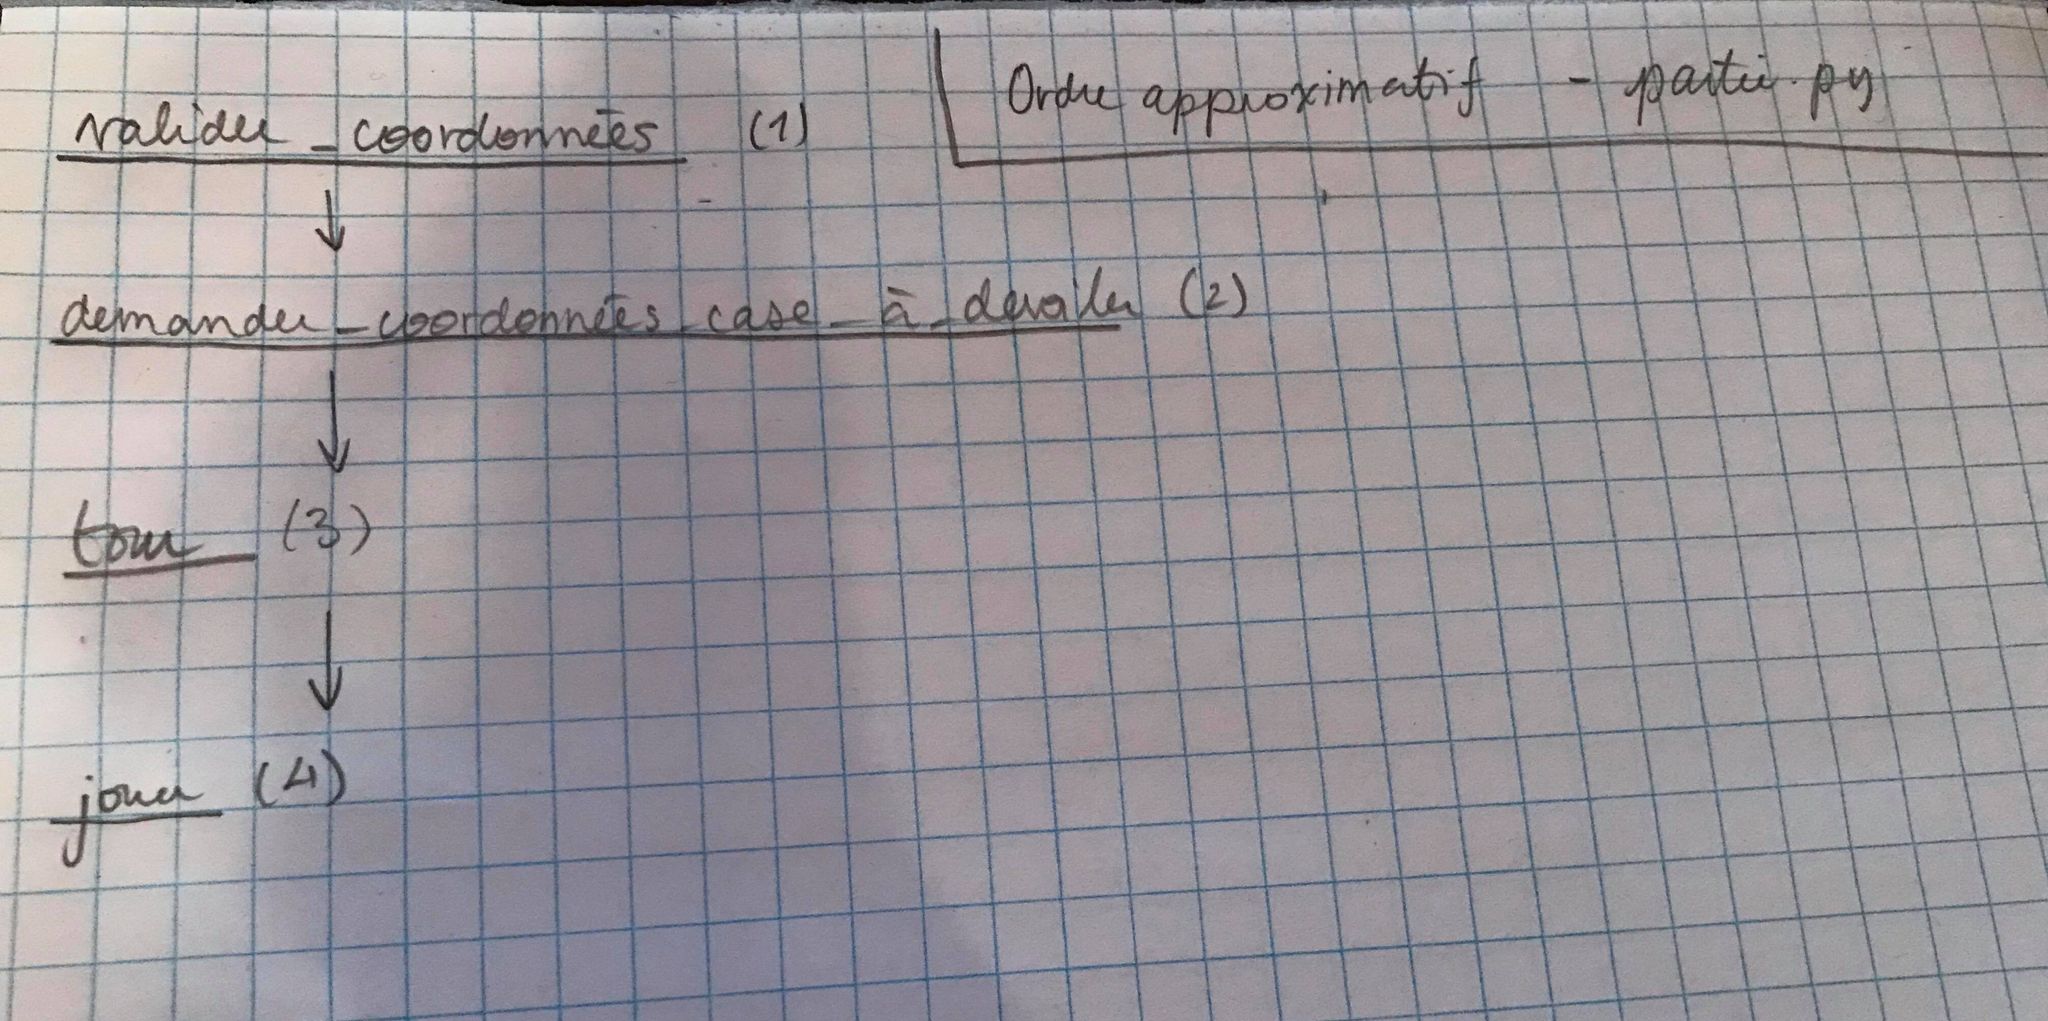 Ordre approximatif - partie.py
valider_coordonnées (1)
↓
demander_coordonnées_case_à_dévoiler (2)
↓
tour (3)
↓
jouer (4)